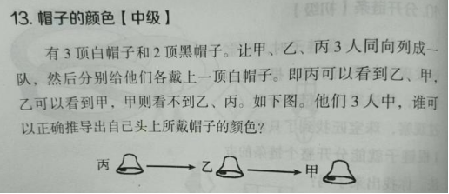 13. 帽子的颜色【中级】
有3顶白帽子和2顶黑帽子。让甲、乙、丙3人同向列成一
队，然后分别给他们各戴上一顶白帽子。即丙可以看到乙、甲，
乙可以看到甲，甲则看不到乙、丙。如下图。他们3人中，谁可
以正确推导出自己头上所戴帽子的颜色？
丙 乙 甲